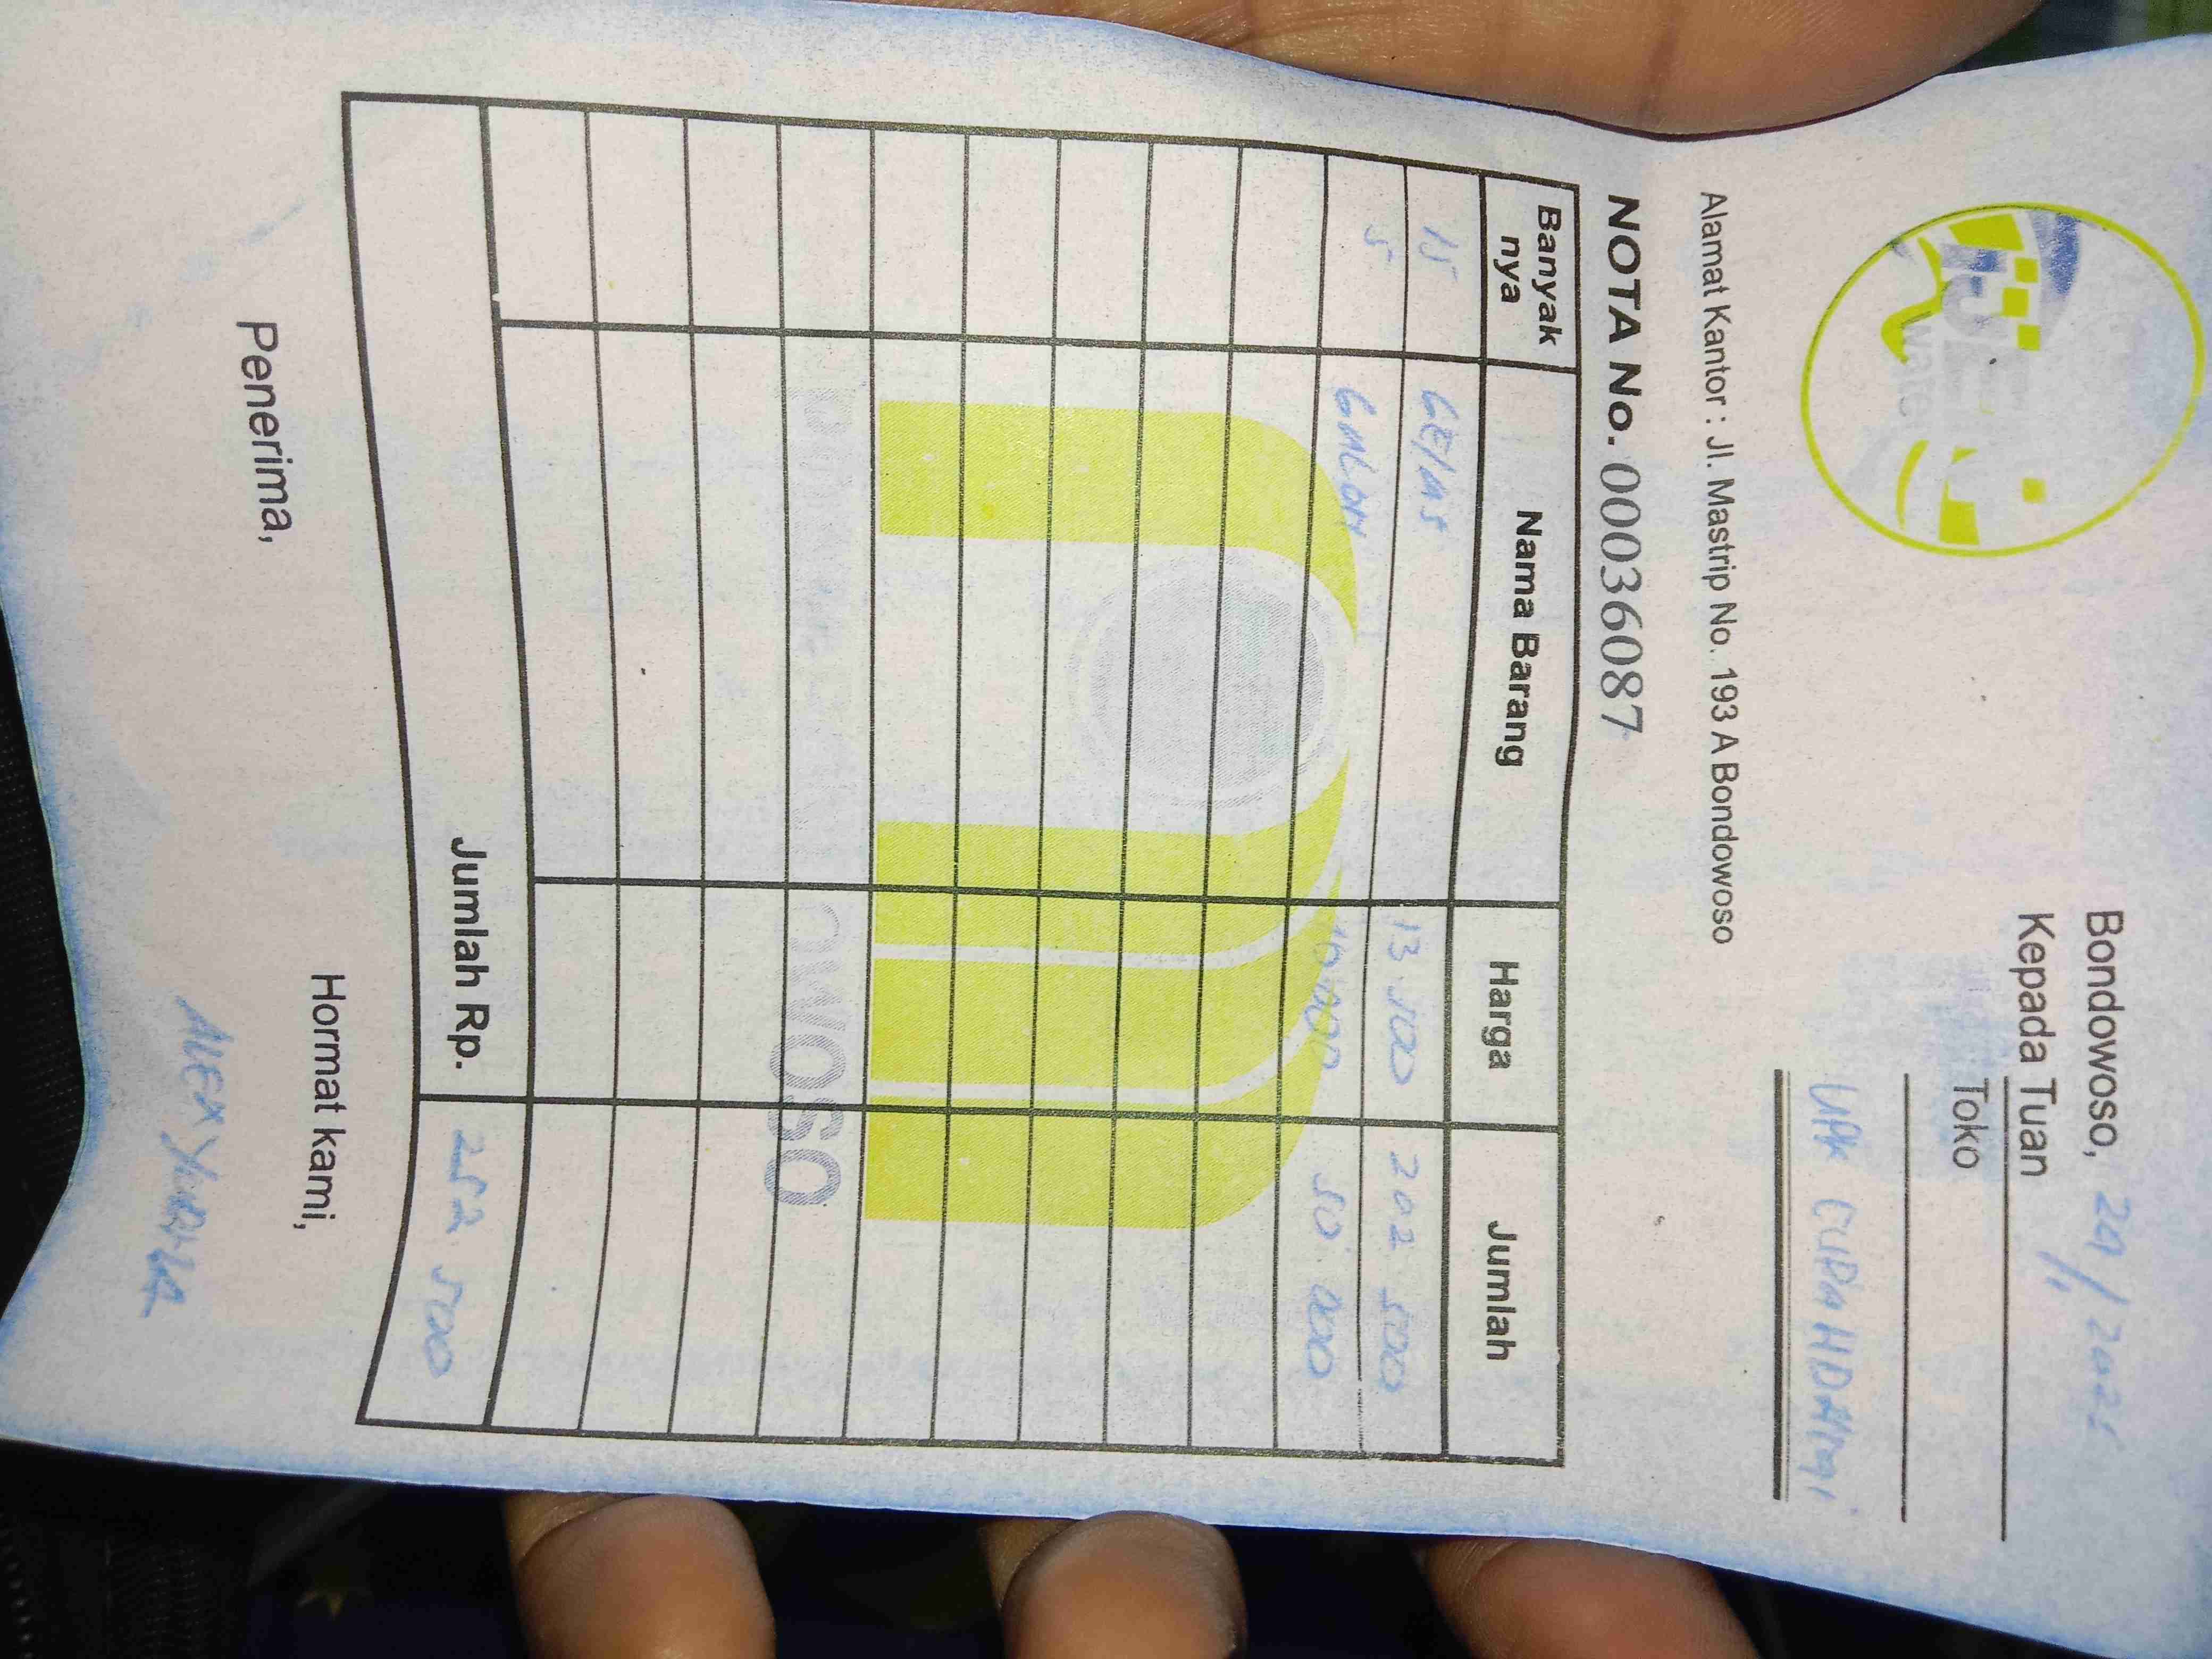 Bondowoso, 29/11 2025
Kepada Tuan
Toko
UPK CURAHDAMI
Alamat Kantor : Jl. Mastrip No. 193 A Bondowoso
NOTA No. 00036087
Banyak nya Nama Barang Harga Jumlah
15 GELAS 13.500 202.500
5 GALON 10.000 50.000
Jumlah Rp. 252.500
Penerima, Hormat kami,